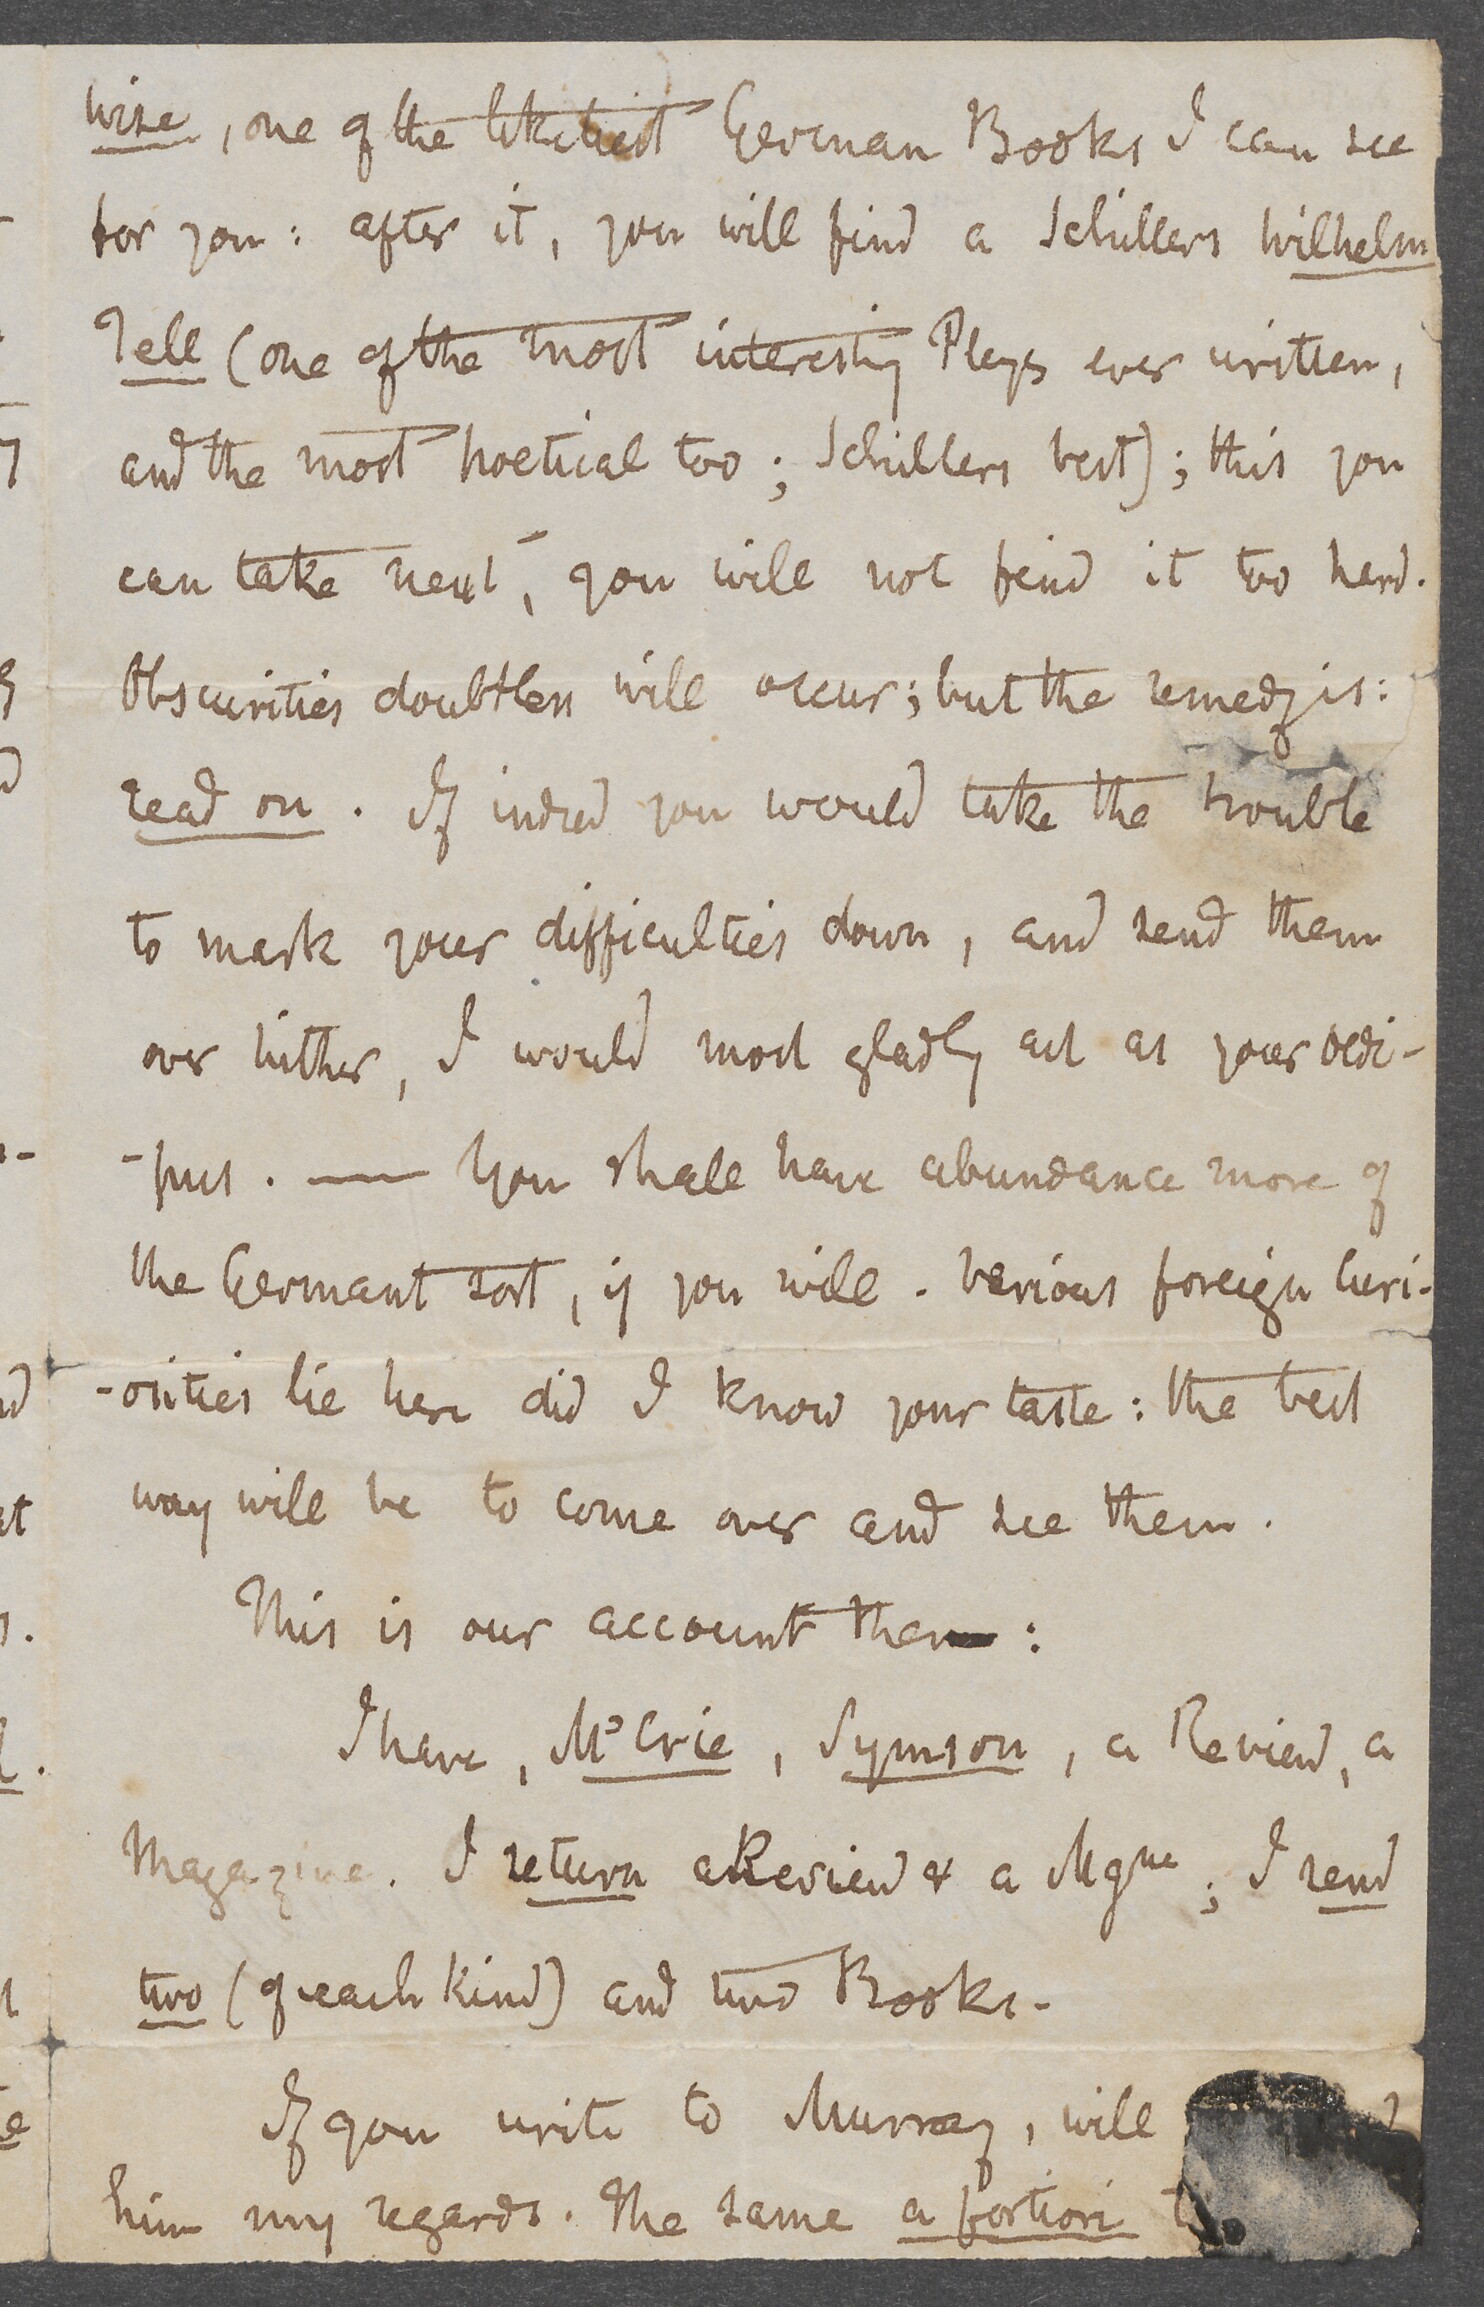 wise, one of the likeliest German Books I can see
for you: after it, you will find a Schillers Wilhelm
Tell (one of the most interesting Plays ever written,
and the most poetical too; Schillers best); this you
can take next, you will not find it too hard.
Obscurities doubtless will occur; but the remedy is:
read on. If indeed you would take the trouble
to mark your difficulties down, and send them
over hither, I would most gladly act as your Oedi-
-pus. — You shall have abundance more of
the German sort, if you will. Various foreign Curi-
-osities lie here did I know your taste: the best
way will be to come over and see them.
This is our account then:
I have, McCrie, Symson, a Review, a
Magazine. I return a Review & a Mgne; I send
two (of each kind) and two Books.
If you write to Murray, will
him my regards. The same a fortiori